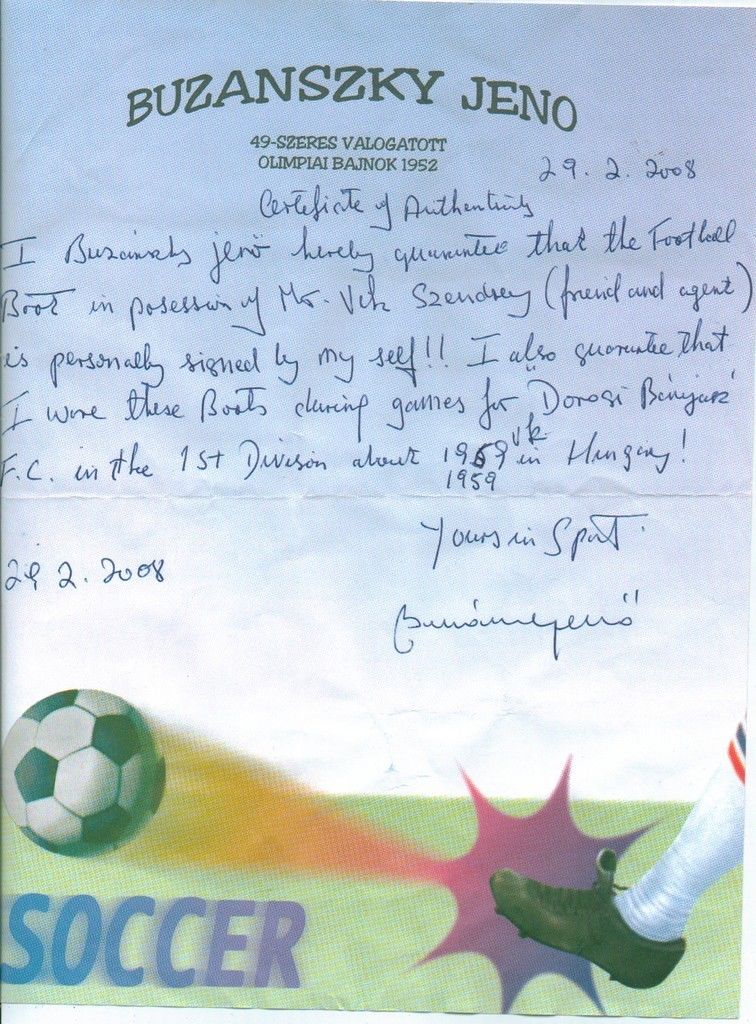 BUZANSZKY JENO
49-SZERES VALOGATOTT
OLIMPIAI BAJNOK 1952
29. 2. 2008
Certificate of Authenticity
I Buzánszky jenő hereby guarantee that the Football
Boot in posession of Mr. Vik Szendrey (friend and agent)
is personally signed by my self!! I also guarantee that
I wore these Boots during games for "Dorogi Bányász"
F.C. in the 1st Division about 1959 vk in Hungary!
1959
Yours in Sport.
29 2. 2008
Buzánszky jenő
SOCCER